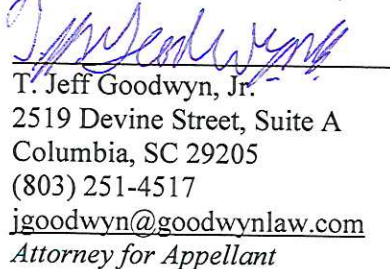 T. Jeff Goodwyn, Jr.
2519 Devine Street, Suite A
Columbia, SC 29205
(803) 251-4517
jgoodwyn@goodwynlaw.com
Attorney for Appellant